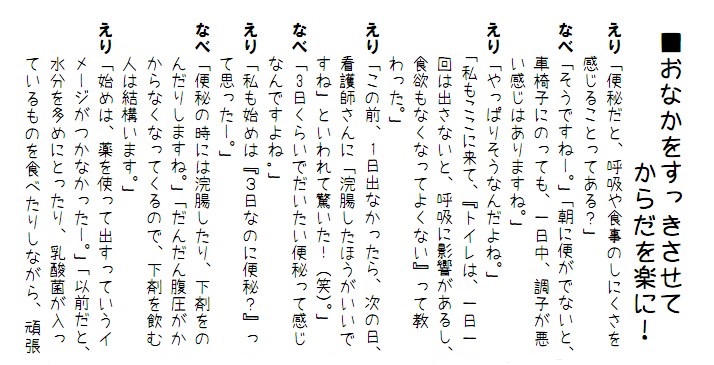 ■おなかをすっきさせて
からだを楽に！
えり「便秘だと、呼吸や食事のしにくさを
感じることってある？」
なべ「そうですねー。」「朝に便がでないと、
車椅子にのっても、一日中、調子が悪
い感じはありますね。」
えり「やっぱりそうなんだよね。」
「私もここに来て、『トイレは、一日一
回は出さないと、呼吸に影響があるし、
食欲もなくなってよくない』って教
わった。」
えり「この前、１日出なかったら、次の日、
看護師さんに「浣腸したほうがいいで
すね」といわれて驚いた！（笑）。」
なべ「３日くらいでだいたい便秘って感じ
なんですよね。」
えり「私も始めは『３日なのに便秘？』っ
て思ったー。」
なべ「便秘の時には浣腸したり、下剤をの
んだりしますね。」「だんだん腹圧がか
からなくなってくるので、下剤を飲む
人は結構います。」
えり「始めは、薬を使って出すっていうイ
メージがつかなかったー。」「以前だと、
水分を多めにとったり、乳酸菌が入っ
ているものを食べたりしながら、頑張